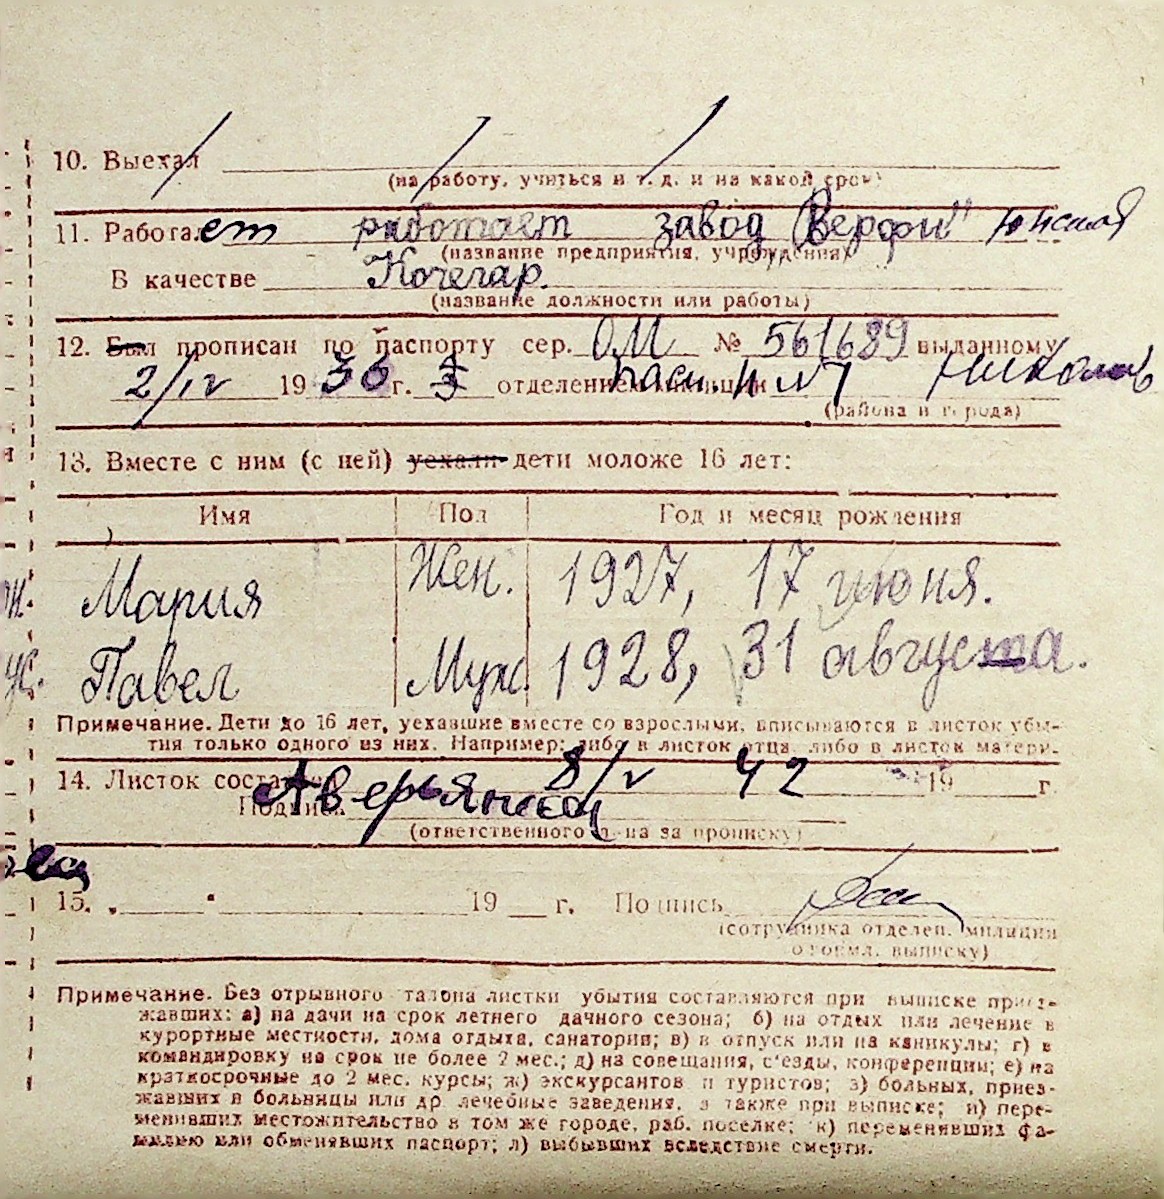 10. Выехал
(на работу, учиться и т. д. и на какой срок)
11. Работает работает завод „Верфи"
(название предприятия, учреждения)
В качестве Кочегар.
(название должности или работы)
12. Был прописан по паспорту сер. ОМ № 561689 выданному
2/IV 1936 г. 3 отделением милиции
(района и города)
13. Вместе с ним (с ней) уехали дети моложе 16 лет:
Имя Пол Год и месяц рождения
Мария Жен. 1927, 17 июня.
Павел Муж. 1928, 31 августа.
Примечание. Дети до 16 лет, уехавшие вместе со взрослыми, вписываются в листок убы-
тия только одного из них. Например: либо в листок отца, либо в листок матери.
14. Листок составлен 8/V 42 19 г.
Подпись
(ответственного л-ца за прописку)
15. „ " 19 г. Подпись
(сотрудника отделен. милиции
оформл. выписку)
Примечание. Без отрывного талона листки убытия составляются при выписке приез-
жавших: а) на дачи на срок летнего дачного сезона; б) на отдых или лечение в
курортные местности, дома отдыха, санатории; в) в отпуск или на каникулы; г) в
командировку на срок не более 2 мес.; д) на совещания, с'езды, конференции; е) на
краткосрочные до 2 мес. курсы; ж) экскурсантов и туристов; з) больных, приез-
жавших в больницы или др. лечебные заведения, а также при выписке; и) пере-
менивших местожительство в том же городе, раб. поселке; к) переменивших фа-
милию или обменявших паспорт; л) выбывших вследствие смерти.